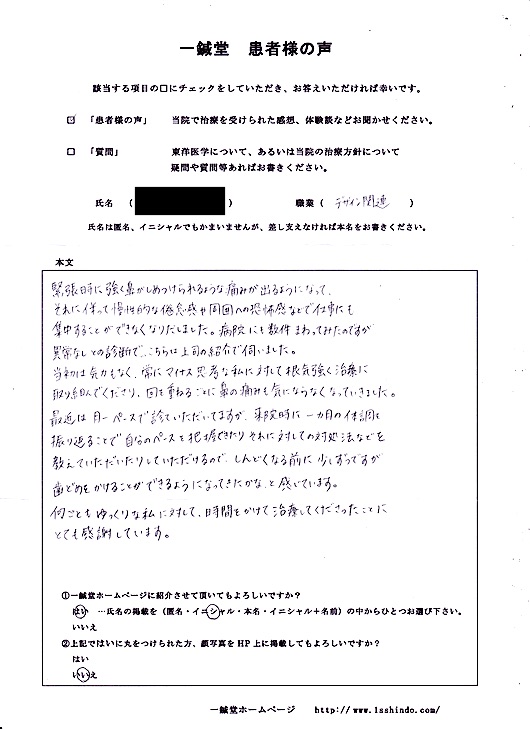 一鍼堂 患者様の声
該当する項目の口にチェックをしていただき、お答えいただければ幸いです。
☑ 「患者様の声」 当院で治療を受けられた感想、体験談などお聞かせください。
□ 「質問」 東洋医学について、あるいは当院の治療方針について
疑問や質問等あればお書きください。
氏名 ( ) 職業 ( デザイン関連 )
氏名は匿名、イニシャルでもかまいませんが、差し支えなければ本名をお書きください。
本文
緊張時に強く鼻がしめつけられるような痛みが出るようになって、
それに伴って慢性的な倦怠感や周囲への恐怖感などで仕事にも
集中することができなくなりだしました。病院にも数件まわってみたのですが
異常なしとの診断で、こちらは上司の紹介で伺いました。
当初は気力もなく、常にマイナス思考な私に対して根気強く治療に
取り組んでくださり、回を重ねるごとに鼻の痛みも気にならなくなっていきました。
最近は月一ペースで診ていただいてますが、来院時に一カ月の体調を
振り返ることで自分のペースを把握できたりそれに対しての対処法などを
教えていただいたりしていただけるので、しんどくなる前に少しずつですが
歯どめをかけることができるようになってきたかな、と感じています。
何ごともゆっくりな私に対して、時間をかけて治療してくださったことに
とても感謝しています。
①一鍼堂ホームページに紹介させて頂いてもよろしいですか？
はい …氏名の掲載を（匿名・イニシャル・本名・イニシャル＋名前）の中からひとつお選び下さい。
いいえ
②上記ではいに丸をつけられた方、顔写真をHP上に掲載してもよろしいですか？
はい
いいえ
一鍼堂ホームページ http://www.1sshindo.com/